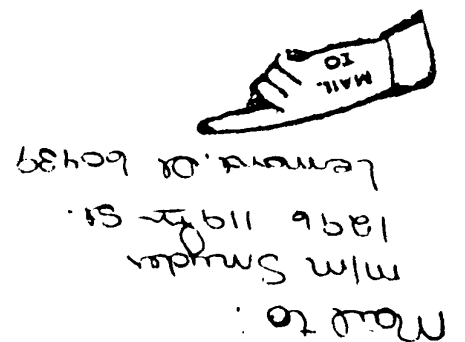 Mail to:
M/M Snyder
1296 119th St.
Lemont, Il 60439
MAIL
TO